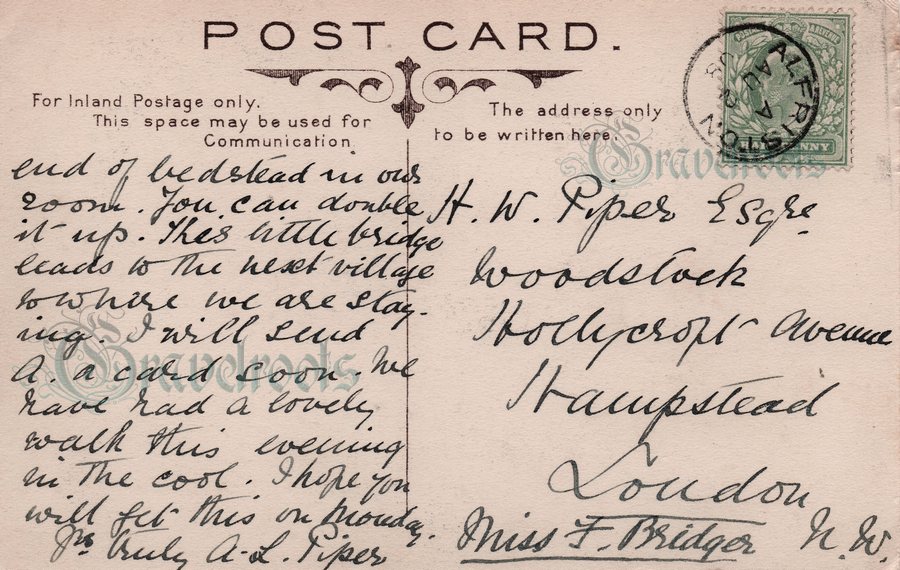 POST CARD.
For Inland Postage only.
This space may be used for
Communication
The address only
to be written here.
ALFRISTON
A
AU
08
PENNY
end of bedstead in our
room. You can double
it up. This little bridge
leads to the next village
to where we are stay-
ing. I will send
A. a card soon. We
have had a lovely
walk this evening
in the cool. I hope you
will get this on Monday.
Yrs truly A. L. Piper
H. W. Piper Esqre
Woodstock
Hollycroft Avenue
Hampstead
London
N. W.
Miss F. Bridger
Gravelroots
Gravelroots